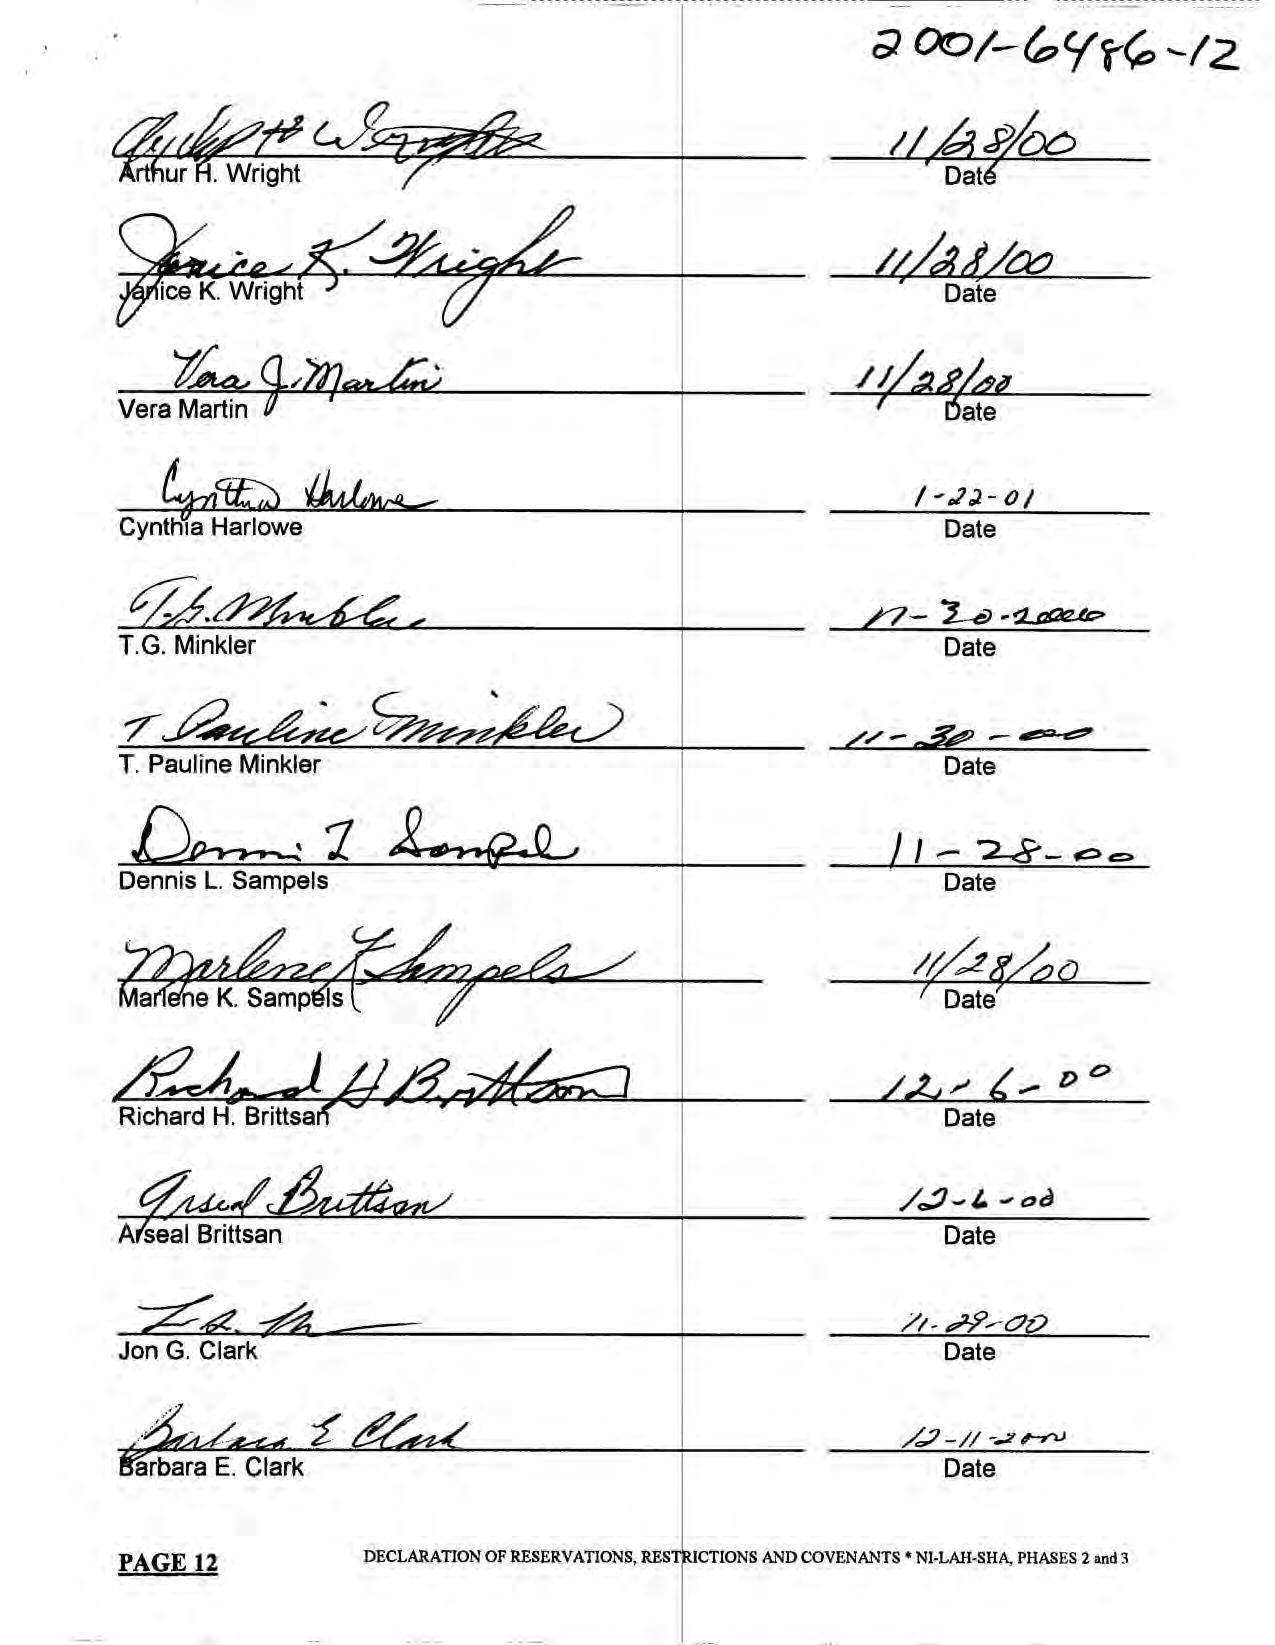 2001-6486-12
Arthur H Wright 11/28/00
Arthur H. Wright Date
Janice K. Wright 11/28/00
Janice K. Wright Date
Vera J. Martin 11/28/00
Vera Martin Date
Cynthia Harlowe 1-22-01
Cynthia Harlowe Date
T.G. Minkler 11-30-2000
T.G. Minkler Date
T Pauline Minkler 11-30-00
T. Pauline Minkler Date
Dennis L Sampels 11-28-00
Dennis L. Sampels Date
Marlene K Sampels 11/28/00
Marlene K. Sampels Date
Richard H Brittsan 12-6-00
Richard H. Brittsan Date
Arseal Brittsan 12-6-00
Arseal Brittsan Date
11-29-00
Jon G. Clark Date
Barbara E Clark 12-11-2000
Barbara E. Clark Date
PAGE 12 DECLARATION OF RESERVATIONS, RESTRICTIONS AND COVENANTS * NI-LAH-SHA, PHASES 2 and 3